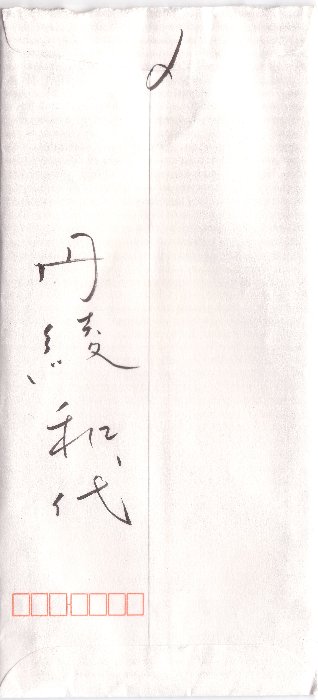 〆
丹綾和代